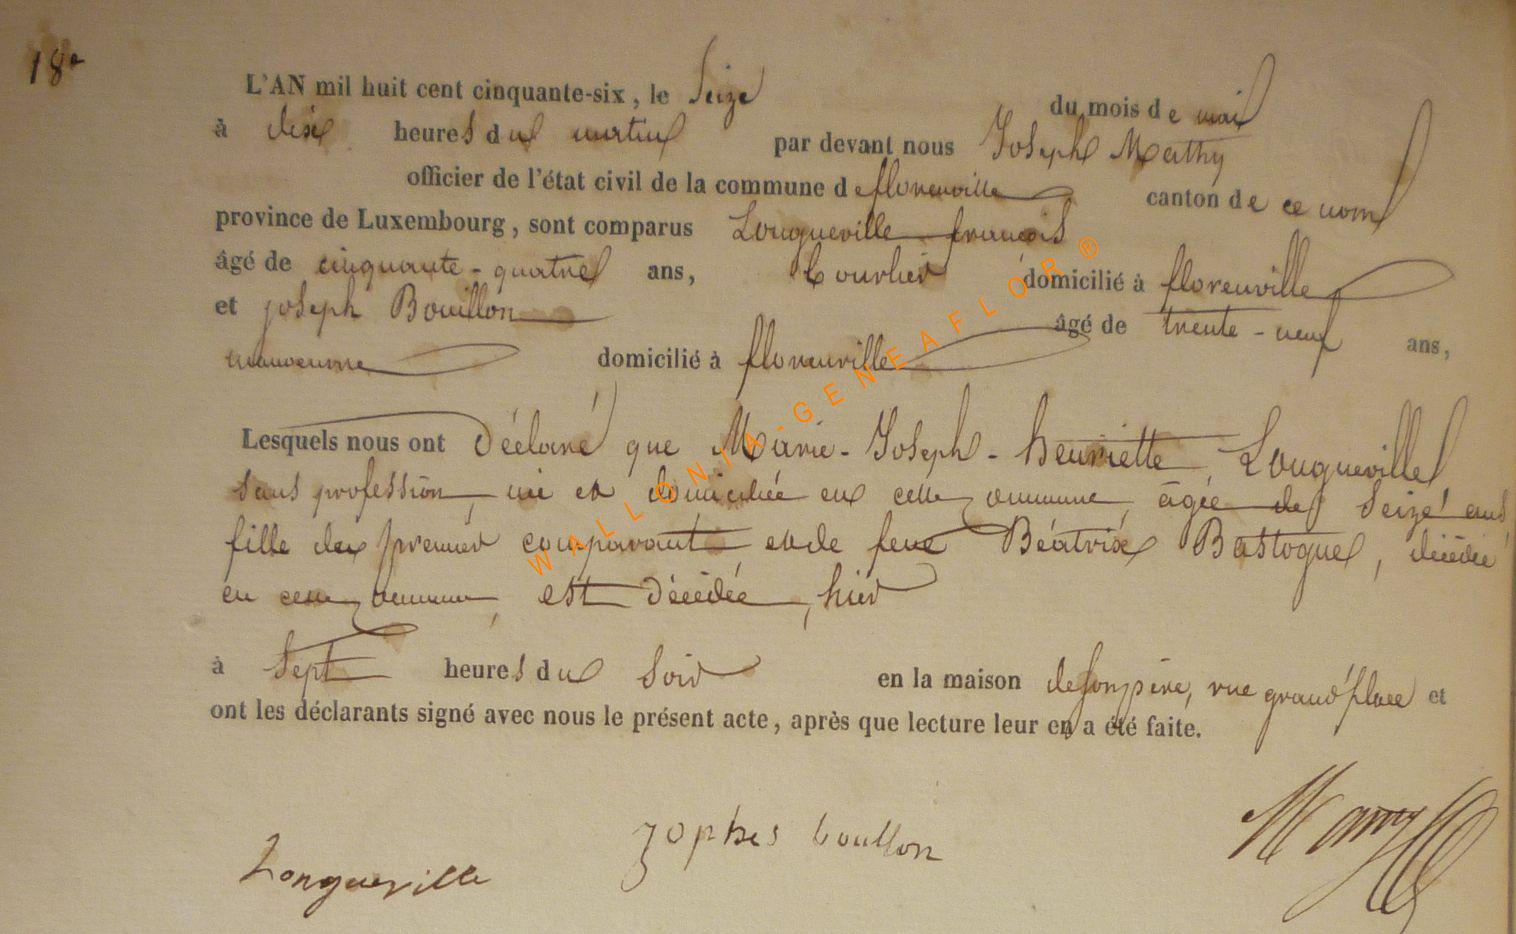 18e
L'AN mil huit cent cinquante-six, le Seize du mois de mai
à dix heures du matin par devant nous Joseph Mathy
officier de l'état civil de la commune de florenville canton de ce nom
province de Luxembourg, sont comparus Longueville françois
âgé de cinquante-quatre ans, Courlier domicilié à florenville
et joseph Bouillon âgé de trente-neuf ans,
manoeuvre domicilié à florenville
Lesquels nous ont Déclaré que Marie-Joseph-henriette Longueville
sans profession, née et domiciliée en cette commune, âgée de Seize ans,
fille du premier comparant et de feue Béatrix Bastogne, décédée
en cette commune, est Décédée, hier
à Sept heures du Soir en la maison de son père, rue grand'place et
ont les déclarants signé avec nous le présent acte, après que lecture leur en a été faite.
Longueville
zophes boullon
WALLONIA-GENEAFLOR®